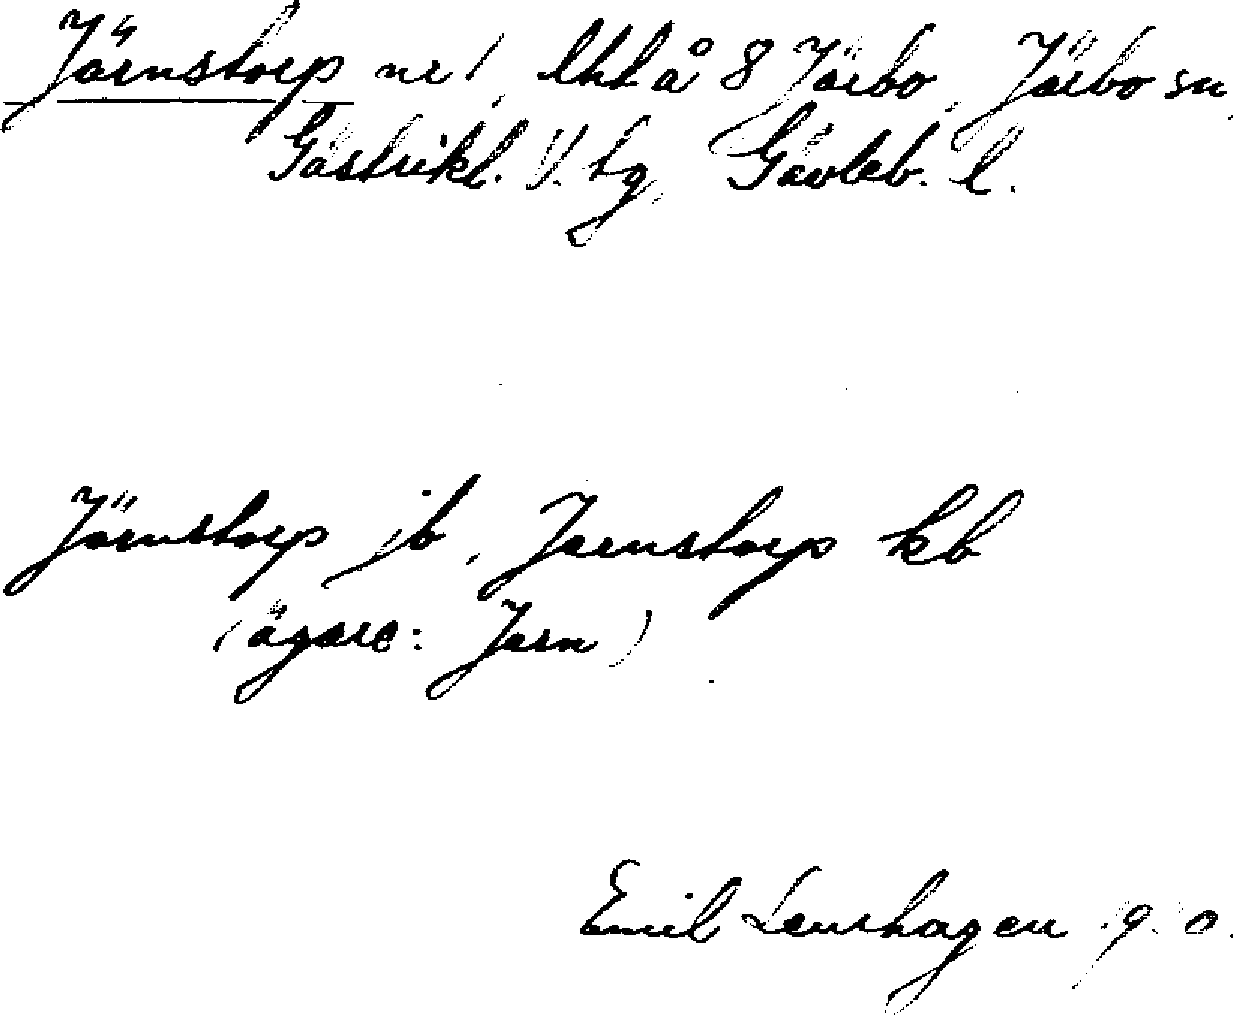 Järnstorp nr 1, lht å 8 Järbo, Järbo sn,
Gästrikl. V. tg, Gävleb. l.
Järnstorp jb, Jarnstorp kb
(ägare: Jarn)
Emil Lenshagen g. o.